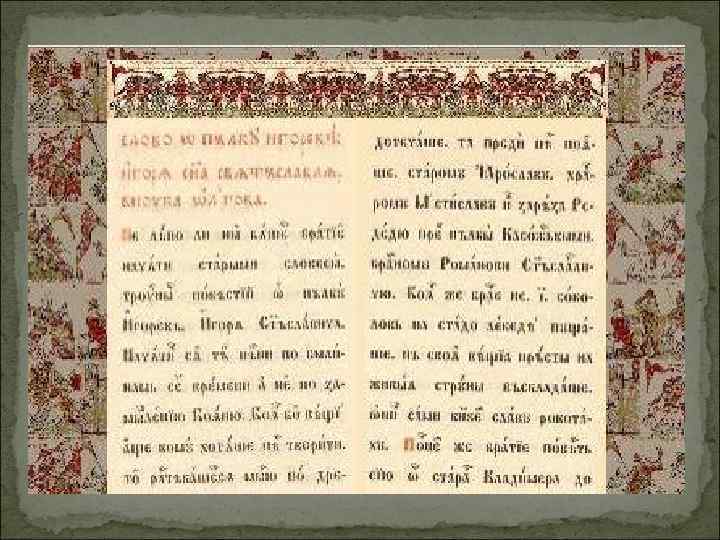 слово ѡ пълкꙋ игоревѣ
игорѧ сн҃а свѧтъславлѧ,
внꙋка ѡльгова.
Не лѣпо ли ны бѧше братїе
начѧти старыми словесы
трꙋдныⷯ повѣстїй ѡ пълкꙋ
Игоревѣ, Игорѧ Ст҃ъславича.
Начатиⷤ сѧ тъ пѣсни по были-
намъ сеⷢ времени а не по за-
мышленїю Боѧню. Боѧ бо вѣщїй
аще комꙋ хотѧше пѣⷭ творити,
то растѣкашетсѧ мыслїю по дре-
дотечаше, та преди пѣⷭ поѧ-
ше, старомꙋ Ꙗрославꙋ, хра-
ромꙋ Мстиславꙋ иⷤ зарѣза Ре-
дедю преⷣ пълкы Касожьскыми,
красномꙋ Романови Ст҃ъславли-
чю. Боѧ же браⷮе не, ї, соко-
ловь на стадо лебедѣй пꙋща-
ше, нъ своѧ вѣщїа пръсты на
живаѧ стрꙋны въскладаше,
ѡни сами кнѧⷥеⷨ славꙋ рокота-
хꙋ. Поⷱнеⷨ же братїе повѣсть
сїю ѿ стараⷢ Владимера до